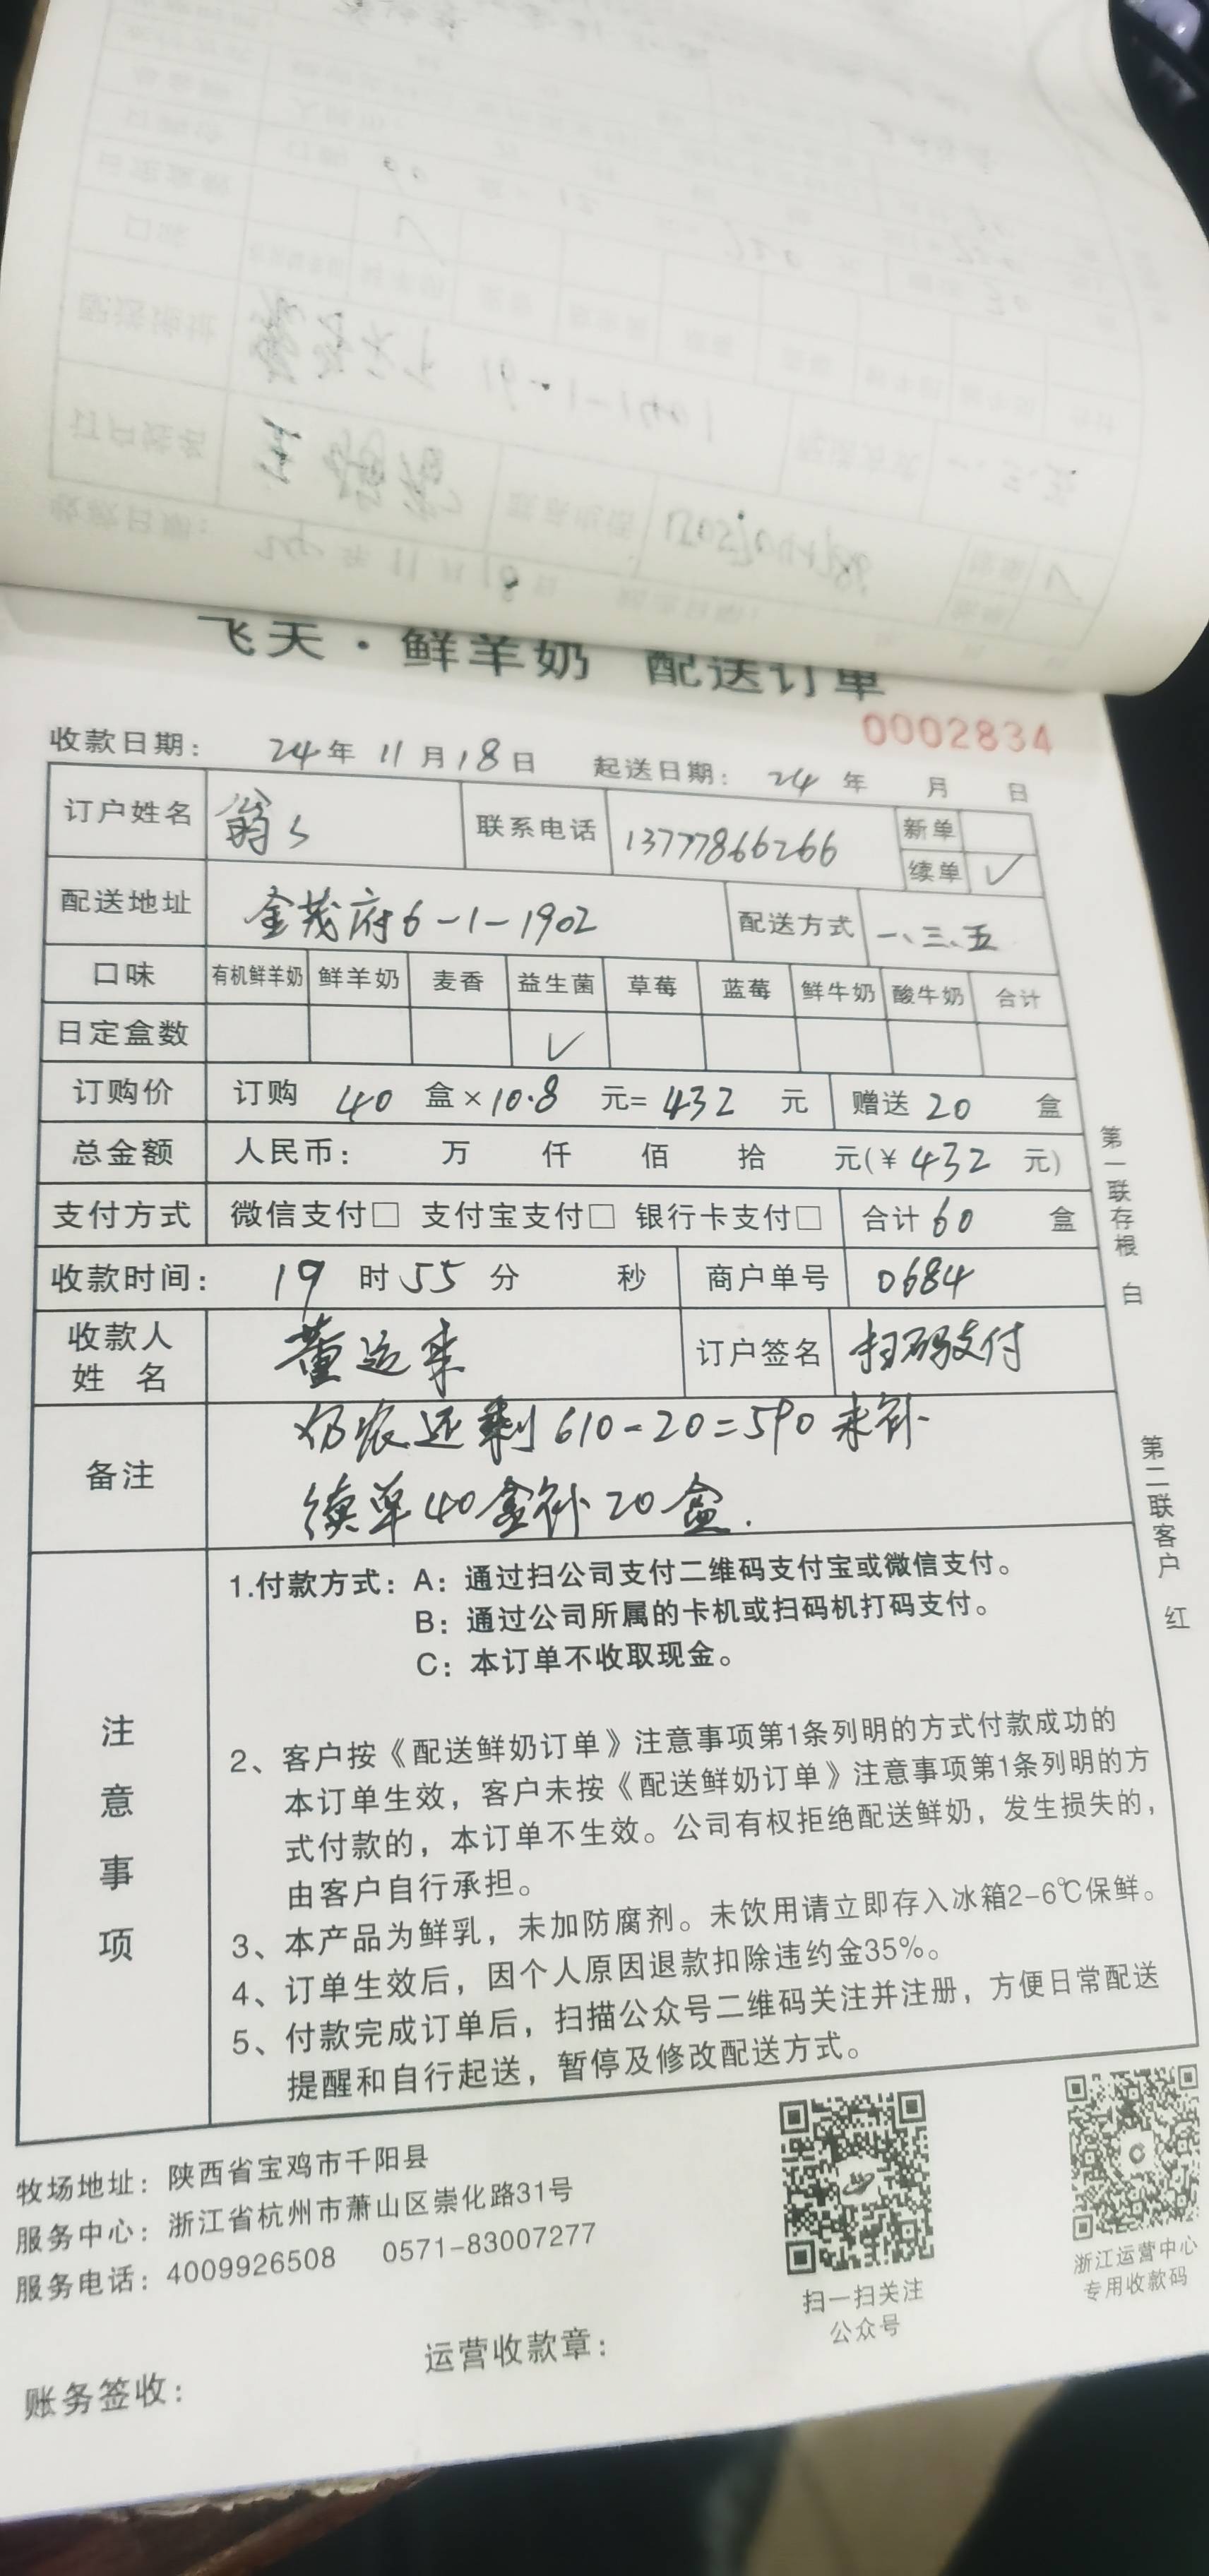 飞天·鲜羊奶 配送订单
0002834
收款日期: 24年 11月18日 起送日期: 24 年 月 日
订户姓名 翁 联系电话 13777866266 新单
续单 ✓
配送地址 金茂府6-1-1902 配送方式 一、三、五
口味 有机鲜羊奶 鲜羊奶 麦香 益生菌 草莓 蓝莓 鲜牛奶 酸牛奶 合计
日定盒数 ✓
订购价 订购 40 盒×10.8 元=432 元 赠送 20 盒
总金额 人民币: 万 仟 佰 拾 元(¥432 元)
支付方式 微信支付□ 支付宝支付□ 银行卡支付□ 合计60 盒
收款时间: 19 时55 分 秒 商户单号 0684
收款人
姓 名 董运来 订户签名 扫码支付
备注 奶农还剩610-20=590未补
续单40盒补20盒.
注意事项
1.付款方式: A: 通过扫公司支付二维码支付宝或微信支付。
B: 通过公司所属的卡机或扫码机打码支付。
C: 本订单不收取现金。
2、客户按《配送鲜奶订单》注意事项第1条列明的方式付款成功的
本订单生效，客户未按《配送鲜奶订单》注意事项第1条列明的方
式付款的，本订单不生效。公司有权拒绝配送鲜奶，发生损失的，
由客户自行承担。
3、本产品为鲜乳，未加防腐剂。未饮用请立即存入冰箱2-6℃保鲜。
4、订单生效后，因个人原因退款扣除违约金35%。
5、付款完成订单后，扫描公众号二维码关注并注册，方便日常配送
提醒和自行起送，暂停及修改配送方式。
第一联存根 白
第二联客户 红
牧场地址: 陕西省宝鸡市千阳县
服务中心: 浙江省杭州市萧山区崇化路31号
服务电话: 4009926508 0571-83007277
扫一扫关注
公众号
浙江运营中心
专用收款码
运营收款章:
账务签收: